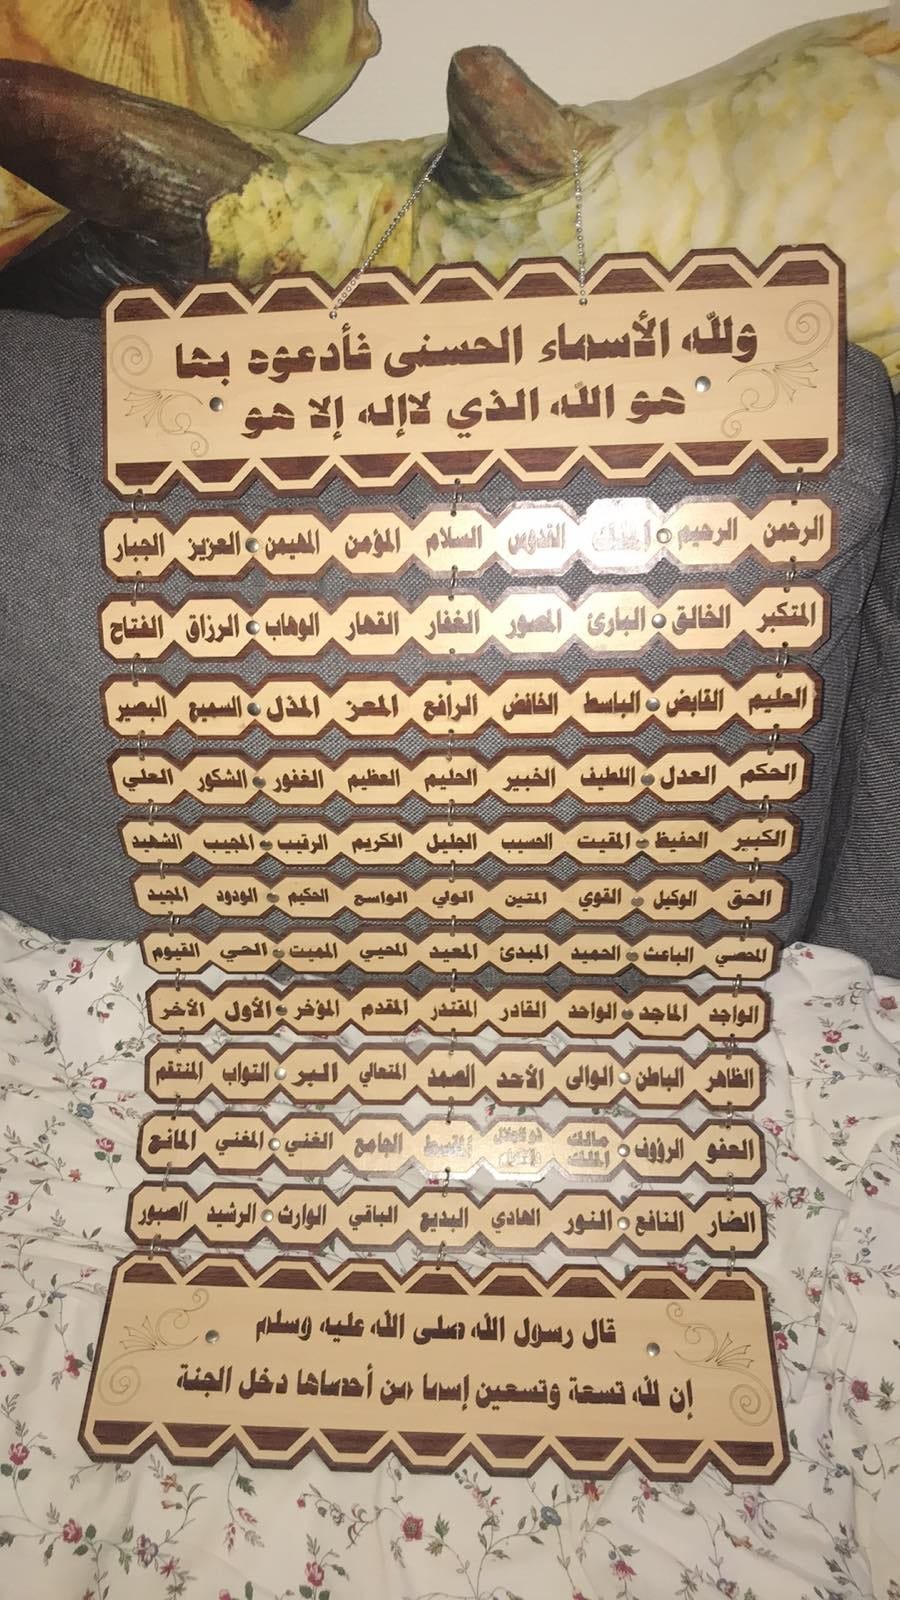 ولله الأسماء الحسنى فأدعوه بها
هو الله الذي لاإله إلا هو
الرحمن الرحيم الملك القدوس السلام المؤمن المهيمن العزيز الجبار
المتكبر الخالق البارئ المصور الغفار القهار الوهاب الرزاق الفتاح
العليم القابض الباسط الخافض الرافع المعز المذل السميع البصير
الحكم العدل اللطيف الخبير الحليم العظيم الغفور الشكور العلي
الكبير الحفيظ المقيت الحسيب الجليل الكريم الرقيب المجيب الشهيد
الحق الوكيل القوي المتين الولي الواسع الحكيم الودود المجيد
المحصي الباعث الحميد المبدئ المعيد المحيي المميت الحي القيوم
الواجد الماجد الواحد القادر المقتدر المقدم المؤخر الأول الأخر
الظاهر الباطن الوالى الأحد الصمد المتعالي البر التواب المنتقم
العفو الرؤوف مالك الملك ذو الجلال والإكرام المقسط الجامع الغني المغني المانع
الضار النافع النور الهادي البديع الباقي الوارث الرشيد الصبور
قال رسول الله صلى الله عليه وسلم
إن لله تسعة وتسعين إسما من أحصاها دخل الجنة